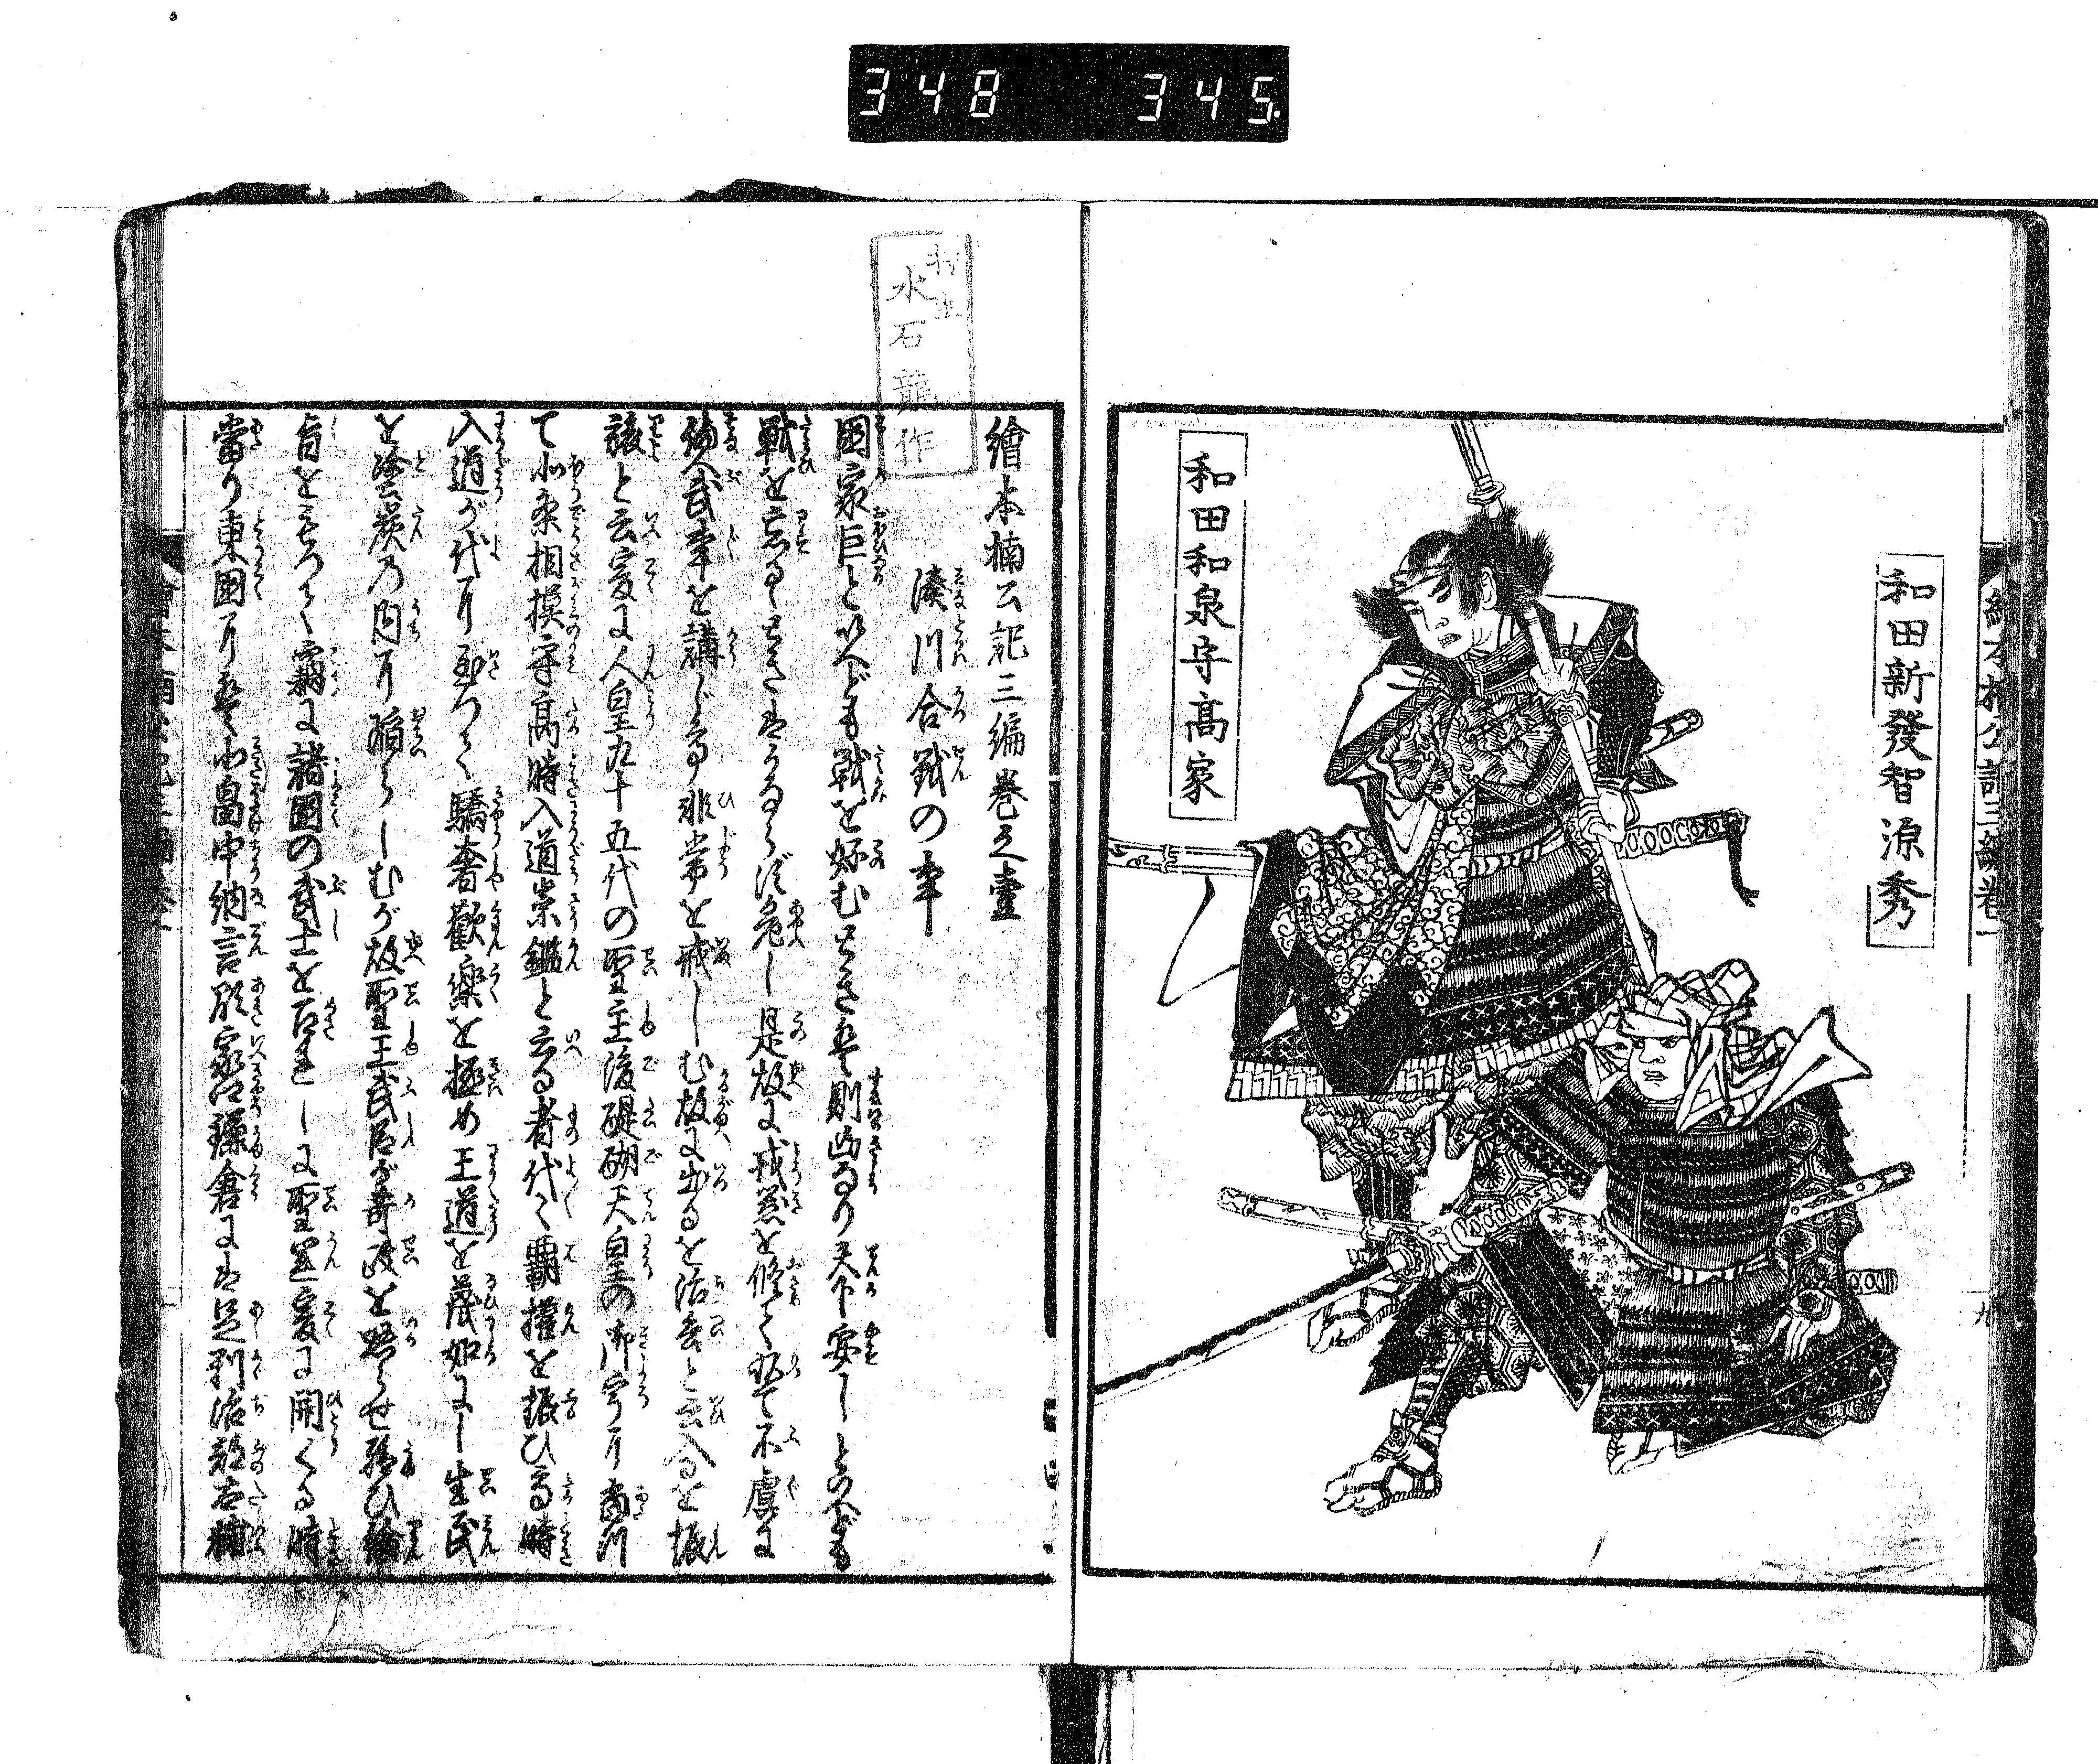 348 345.
和田新發智源秀
和田和泉守髙家
水石龍作
繪本楠公記三編巻之壹
湊川合戦の事
國家巨と以へども戦を好むときは則凶るり天下安しといへども
戦を忘るゝときはかならず危し是故に戎器を修て以て不虞に
備へ武事を講じる非常を戒しむ故に出るを治兵と云入るを振
旅と云爰に人皇九十五代の聖主後醍醐天皇の御宇に當り
て北条相摸守高時入道崇鑑と云る者代々覇權を振ひ高時
入道が代に至つて驕奢歡樂を極め王道を蔑如にし生民
を塗炭の内に陥らしむが故聖王武臣が苛政を怒らせ給ひ綸
旨をもつて竊に諸國の武士を召れしに聖運爰に開くる時
當り東國には北畠中納言顕家卿鎌倉には足利治部太輔